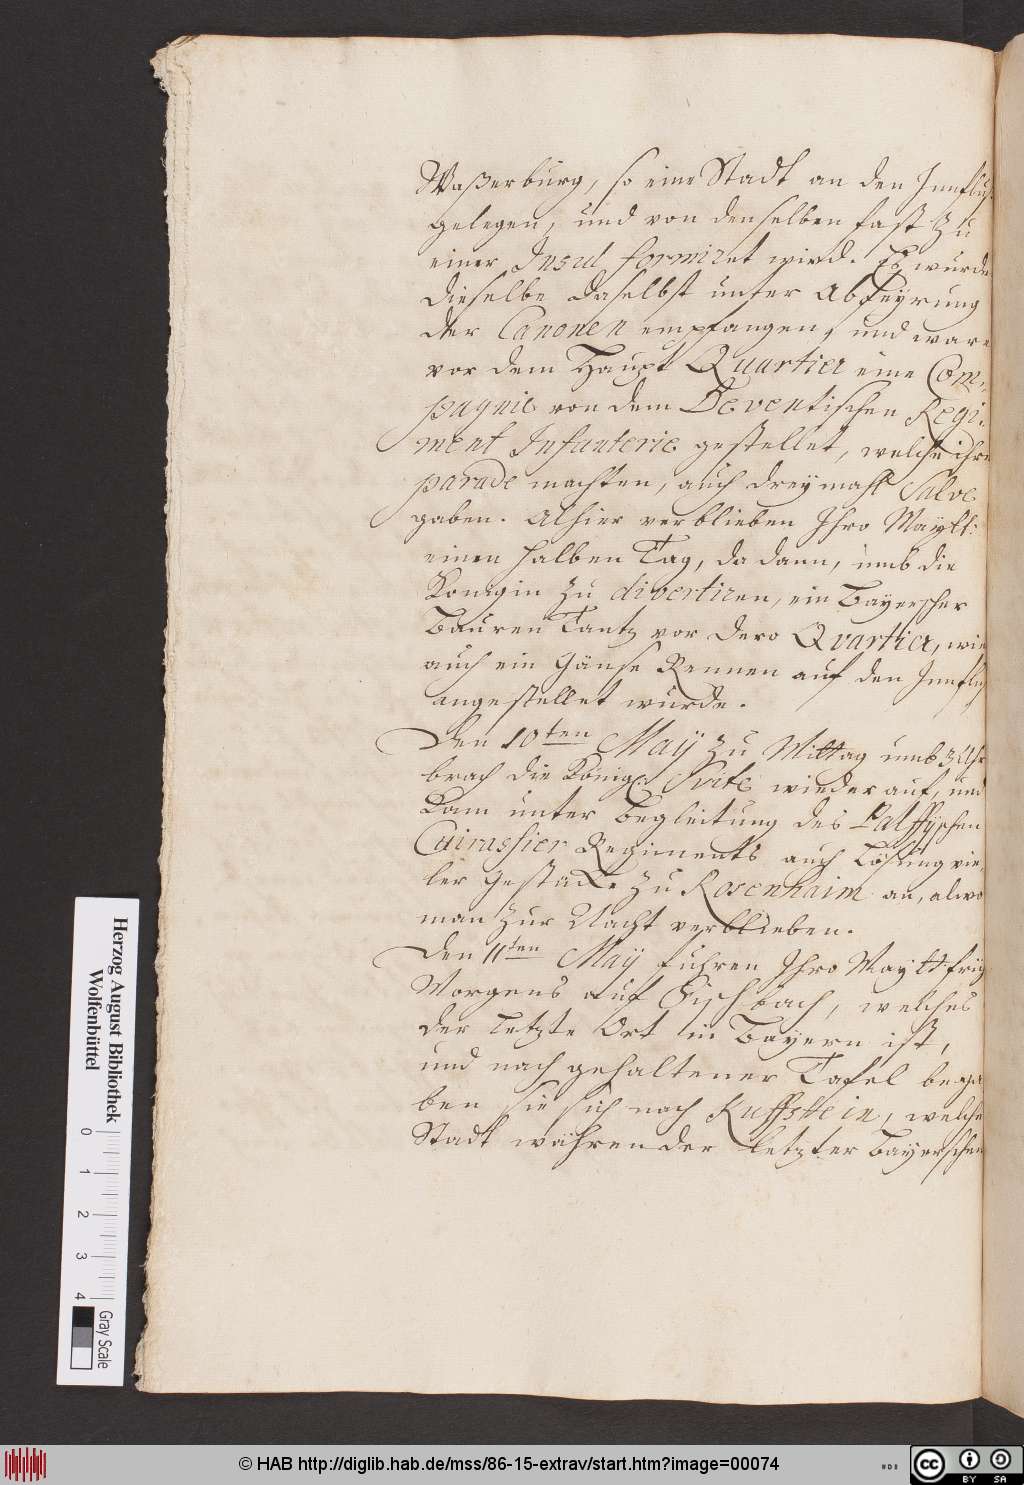 Waßerburg, so eine Stadt an den Innfluß
gelegen, und von denselben fast zu
einer Insul formiret wird. Es wurde
dieselbe daselbst unter Abfeyrung
der Canonen empfangen, und ware
vor dem Haupt Quartier eine Com-
pagnie von dem De ventischen Regi-
ment Infanterie gestellet, welche ihre
parade machten, auch dreymahl Salve
gaben. Alhier verblieben Ihro Maytt:
einen halben Tag, da dann, umb die
Königin zu divertiren, ein Bayerscher
Bauren Tantz vor dero Qvartier, wie
auch ein Gänse Rennen auf den Innfluß
angestellet wurde.
Den 10ten May zu Mittag umb 3 Uhr
brach die Königl: Svite wieder auf, und
kam unter Begleitung des Palffyschen
Cuirassier Regiments auch Lösung vie-
ler Gestücke zu Rosenhaim an, alwo
man zur Nacht verblieben.
Den 11ten May fuhren Ihro Maytt: früh
Morgens auf Fischbach, welches
der letzte Ort in Bayern ist,
und nach gehaltener Tafel bega-
ben sie sich nach Kuffstein, welche
Stadt währender letzter Bayerschen
Herzog August Bibliothek
Wolfenbüttel
0 1 2 3 4
Gray Scale
© HAB http://diglib.hab.de/mss/86-15-extrav/start.htm?image=00074
cc BY SA